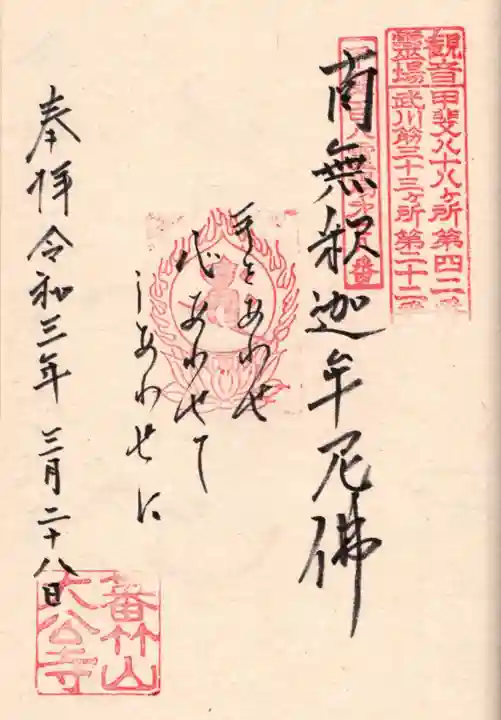 観音霊場
甲斐八十八ヶ所 第四二番
武川筋三十三ヶ所 第二十二番
南無釈迦牟尼佛
手をあわせ
心あわせて
しあわせに
奉拝 令和三年 三月二十八日
大公寺